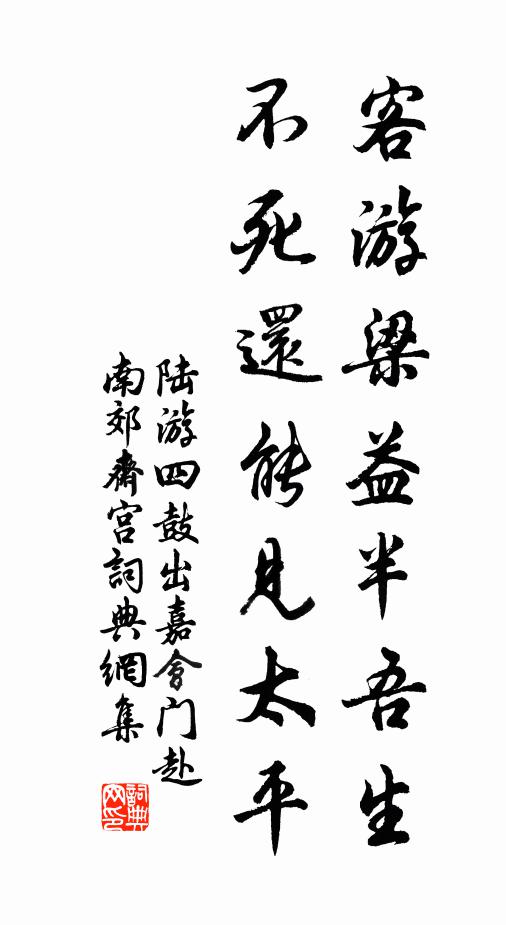 客游梁益半吾生
不死還能見太平
陆游四鼓出嘉會门赴
南郊齋宫詞典網集
詞典
网印